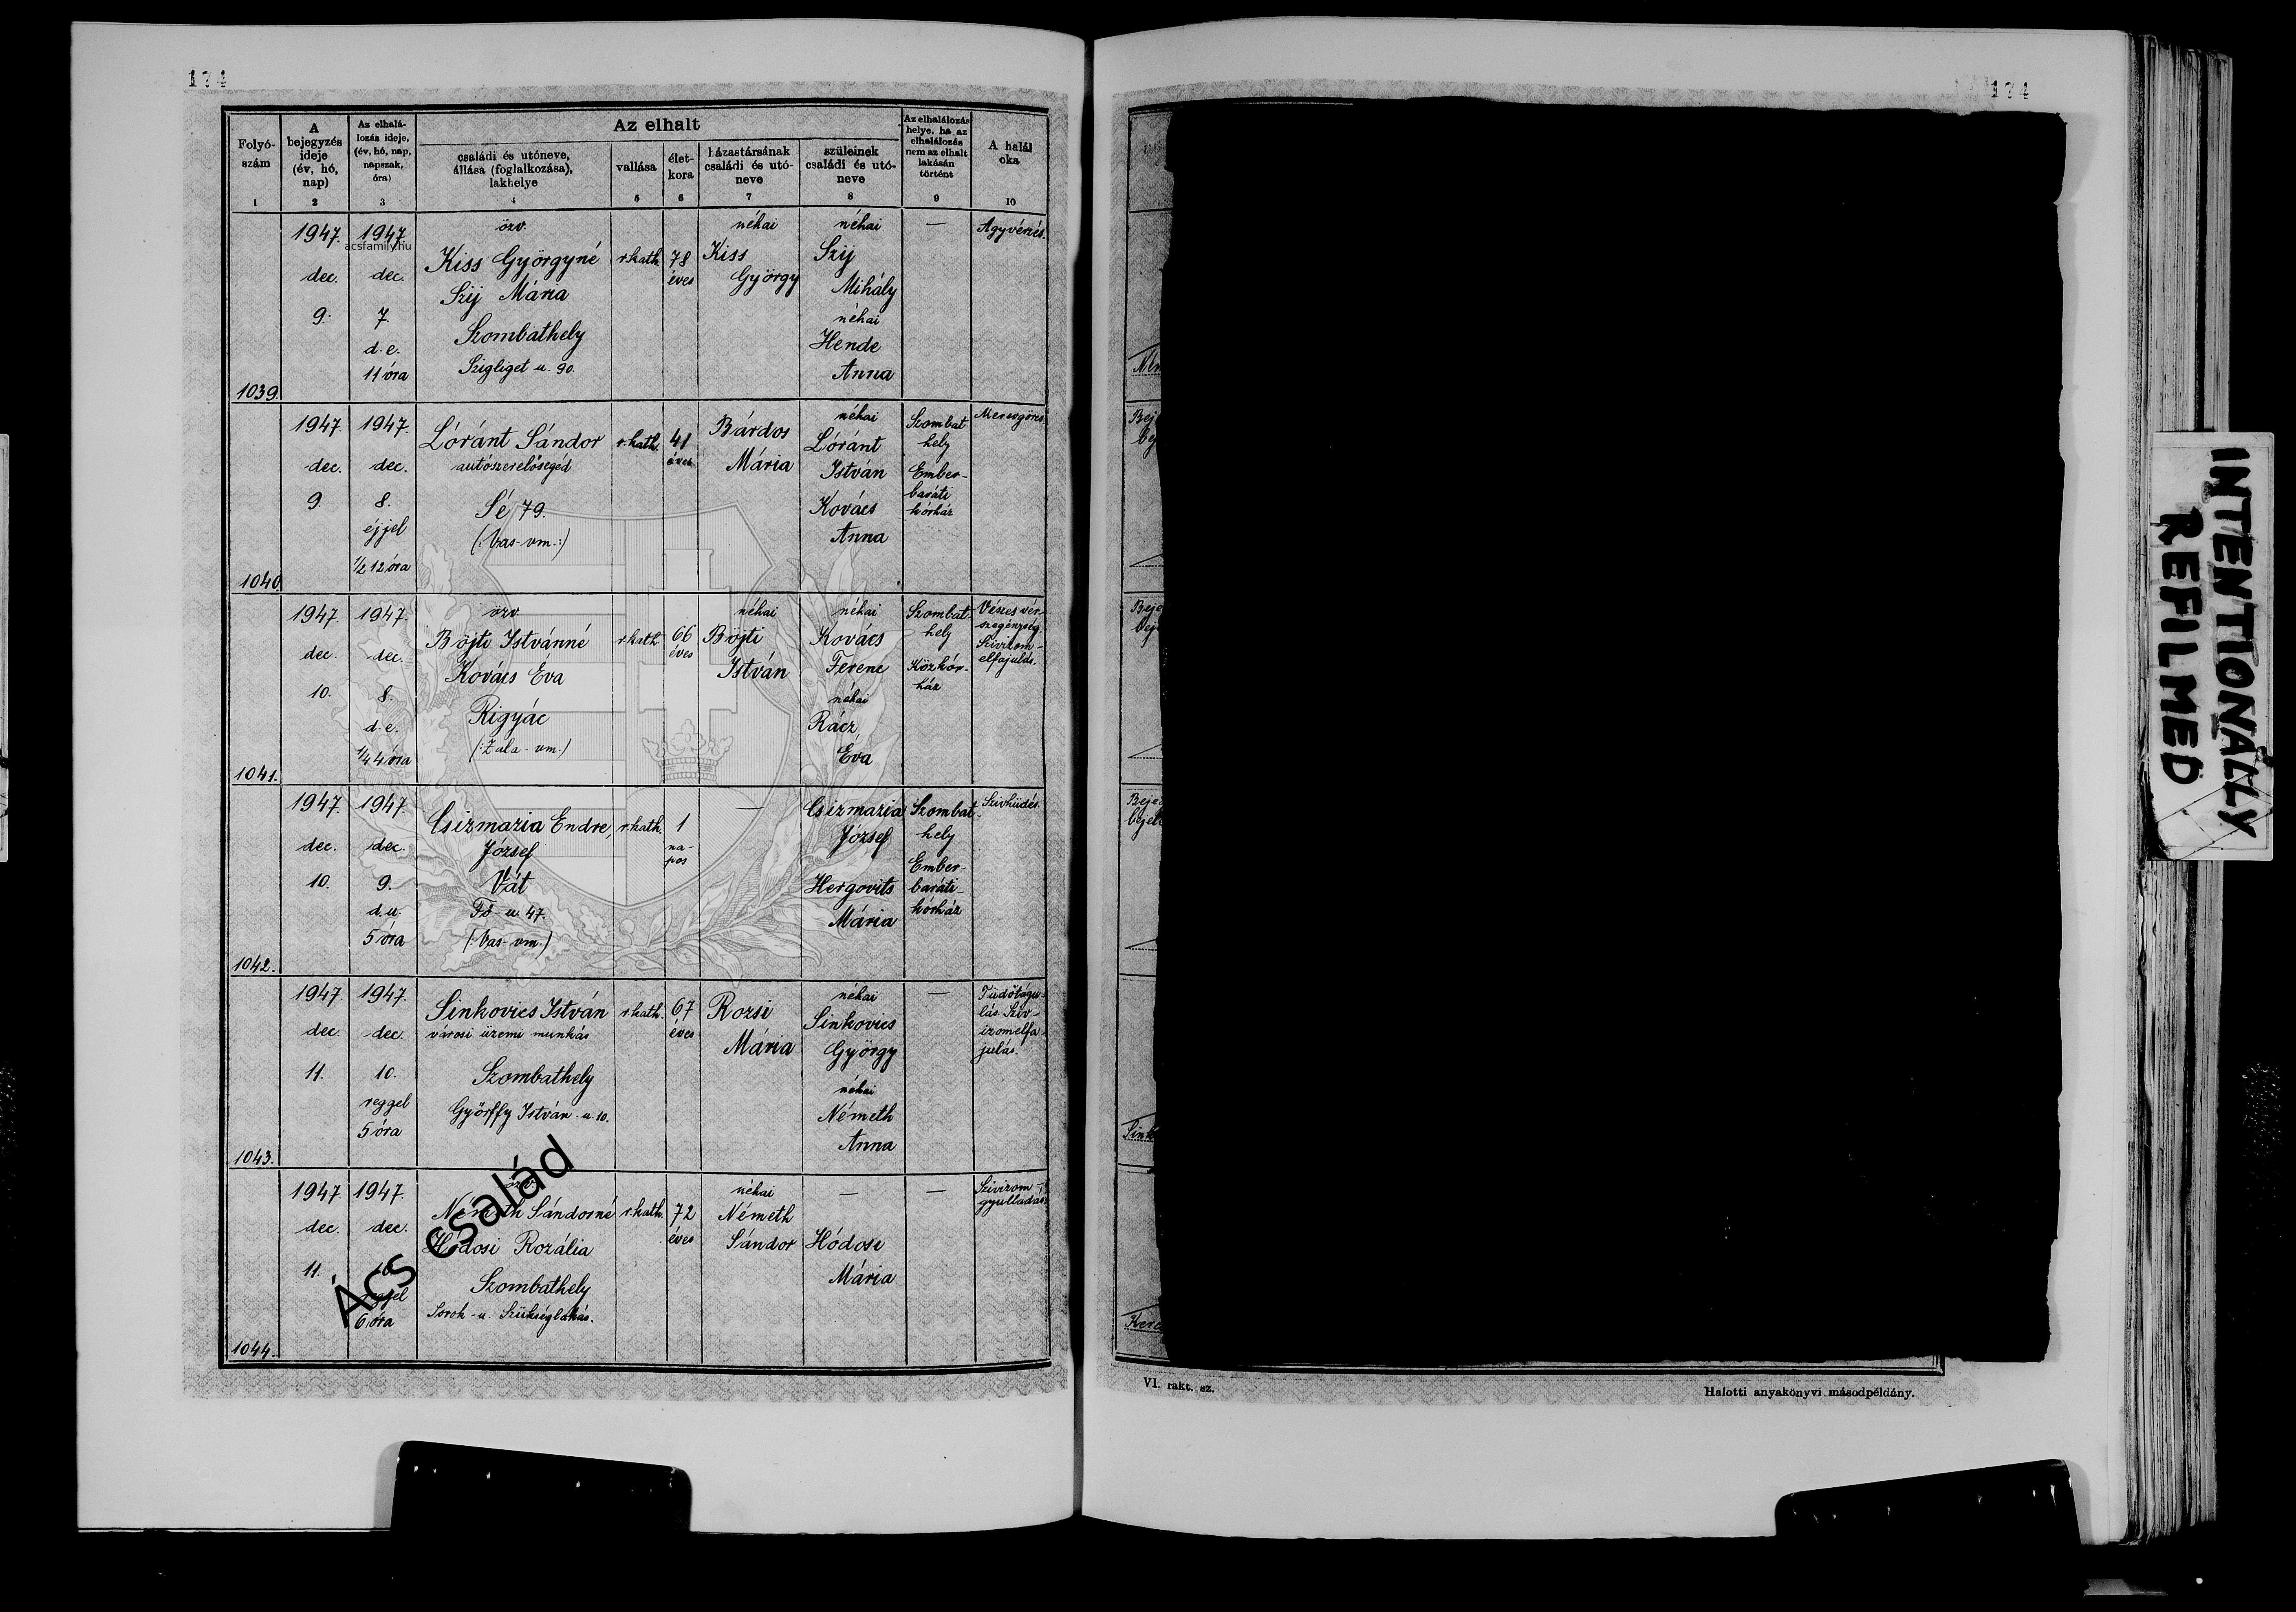 174
Folyó-
szám
A
bejegyzés
ideje
(év, hó,
nap)
Az elhalá-
lozás ideje,
(év, hó, nap,
napszak,
óra)
Az elhalt
családi és utóneve,
állása (foglalkozása),
lakhelye
vallása
élet-
kora
házastársának
családi és utó-
neve
szüleinek
családi és utó-
neve
Az elhalálozás
helye, ha az
elhalálozás
nem az elhalt
lakásán
történt
A halál
oka
1 2 3 4 5 6 7 8 9 10
1039.
1947.
dec.
9.
1947
acsfamily.hu
dec.
7.
d. e.
11 óra
özv.
Kiss Györgyné
Szij Mária
Szombathely
Szigliget u. 90.
r. kath.
78
éves
néhai
Kiss
György
néhai
Szij
Mihály
néhai
Hende
Anna
—
Agyvérzés.
1040.
1947.
dec.
9.
1947.
dec.
8.
éjjel
1/2 12 óra
Lóránt Sándor
autószerelősegéd
Sé 79.
(:Vas-vm.:)
r. kath.
41
éves
Bárdos
Mária
néhai
Lóránt
István
Kovács
Anna
Szombat
hely
Ember-
baráti
kórház
1041.
1947.
dec.
10.
1947.
dec.
8.
d. e.
1/4 4 óra
özv.
Böjti Istvánné
Kovács Eva
Rigyác
(:Zala-vm.)
r. kath.
66
éves
néhai
Böjti
István
néhai
Kovács
Ferenc
néhai
Rácz
Éva
Szombat-
hely
Közkór-
ház
Vészes vér-
szegénység.
Szivizom-
elfajulás.
1042.
1947.
dec.
10.
1947.
dec.
9.
d. u.
5 óra
Csizmazia Endre,
József
Vát
Fő-u. 47.
(:Vas-vm.)
r. kath.
1
na-
pos
—
Csizmazia
József
Hergovits
Mária
Szombat-
hely
Ember-
baráti-
kórház
Szivhüdés.
1043.
1947
dec.
11.
1947.
dec.
10.
reggel
5 óra
Sinkovics István
városi üzemi munkás
Szombathely
Györffy István-u. 10.
r. kath.
67
éves
Rozsi
Mária
néhai
Sinkovics
György
néhai
Németh
Anna
—
Tüdőtágu-
lás. Sziv-
izomelfa-
julás.
1044.
1947
dec.
11.
1947
dec.
10.
reggel
6 óra
özv.
Németh Sándorné
Hódosi Rozália
Szombathely
Sorok-u. Szükséglakás.
r. kath.
72
éves
néhai
Németh
Sándor
—
Hódosi
Mária
—
Szivizom-
gyulladás.
Ács család
174
Beje
bej
Beje
beje
Beje
bejel
Sink
VI. rakt. sz.
Halotti anyakönyvi másodpéldány.
INTENTIONALLY
REFILMED